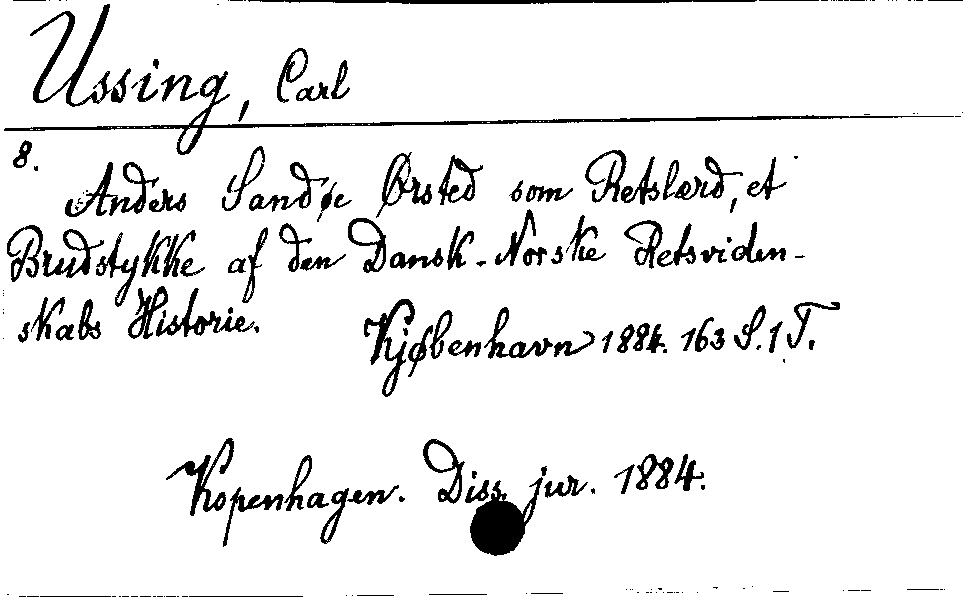 Ussing, Carl
8.
Anders Sandøe Ørsted som Retslærd, et
Brudstykke af den Dansk-Norske Retsviden-
skabs Historie.
Kjøbenhavn 1884. 163 S. 1 T.
Kopenhagen. Diss. jur. 1884.